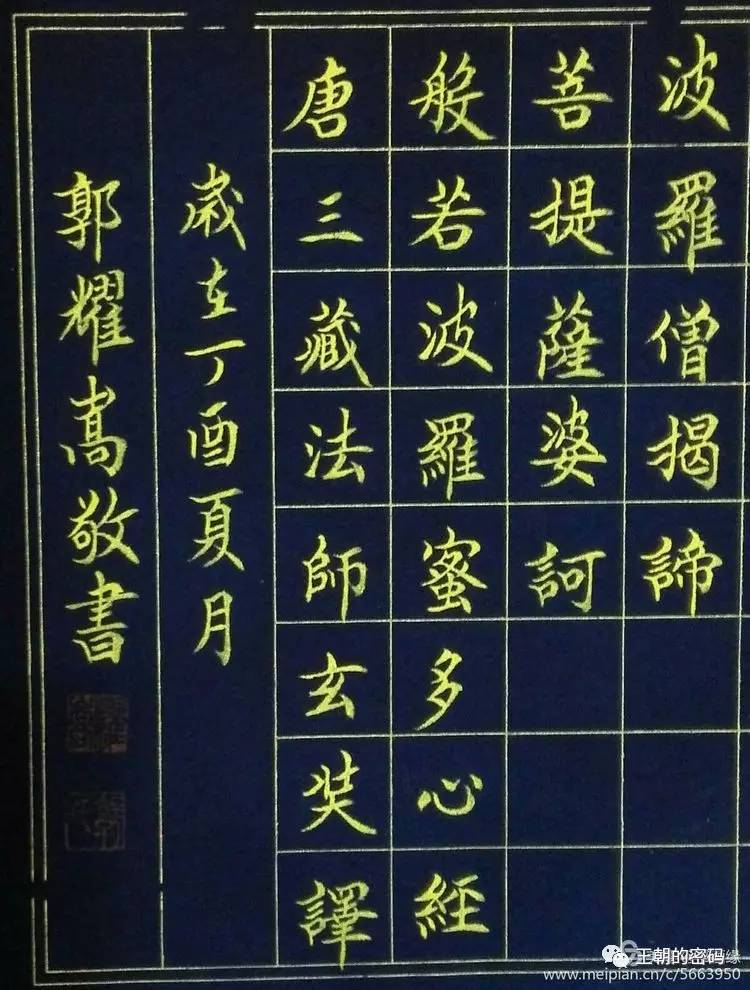 波羅僧揭諦
菩提薩婆訶
般若波羅蜜多心經
唐三藏法師玄奘譯
歲在丁酉夏月
郭耀嵩敬書
王朝的密码缘
www.meipian.cn/c/5663950